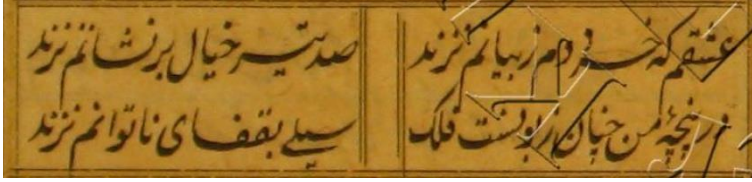 عشقم که خرد دم ز بیانم نزند
صد تیر خیال بر نشانم نزند
در پنجهٔ من چنان زبونست فلک
سیلی بقفای ناتوانم نزند